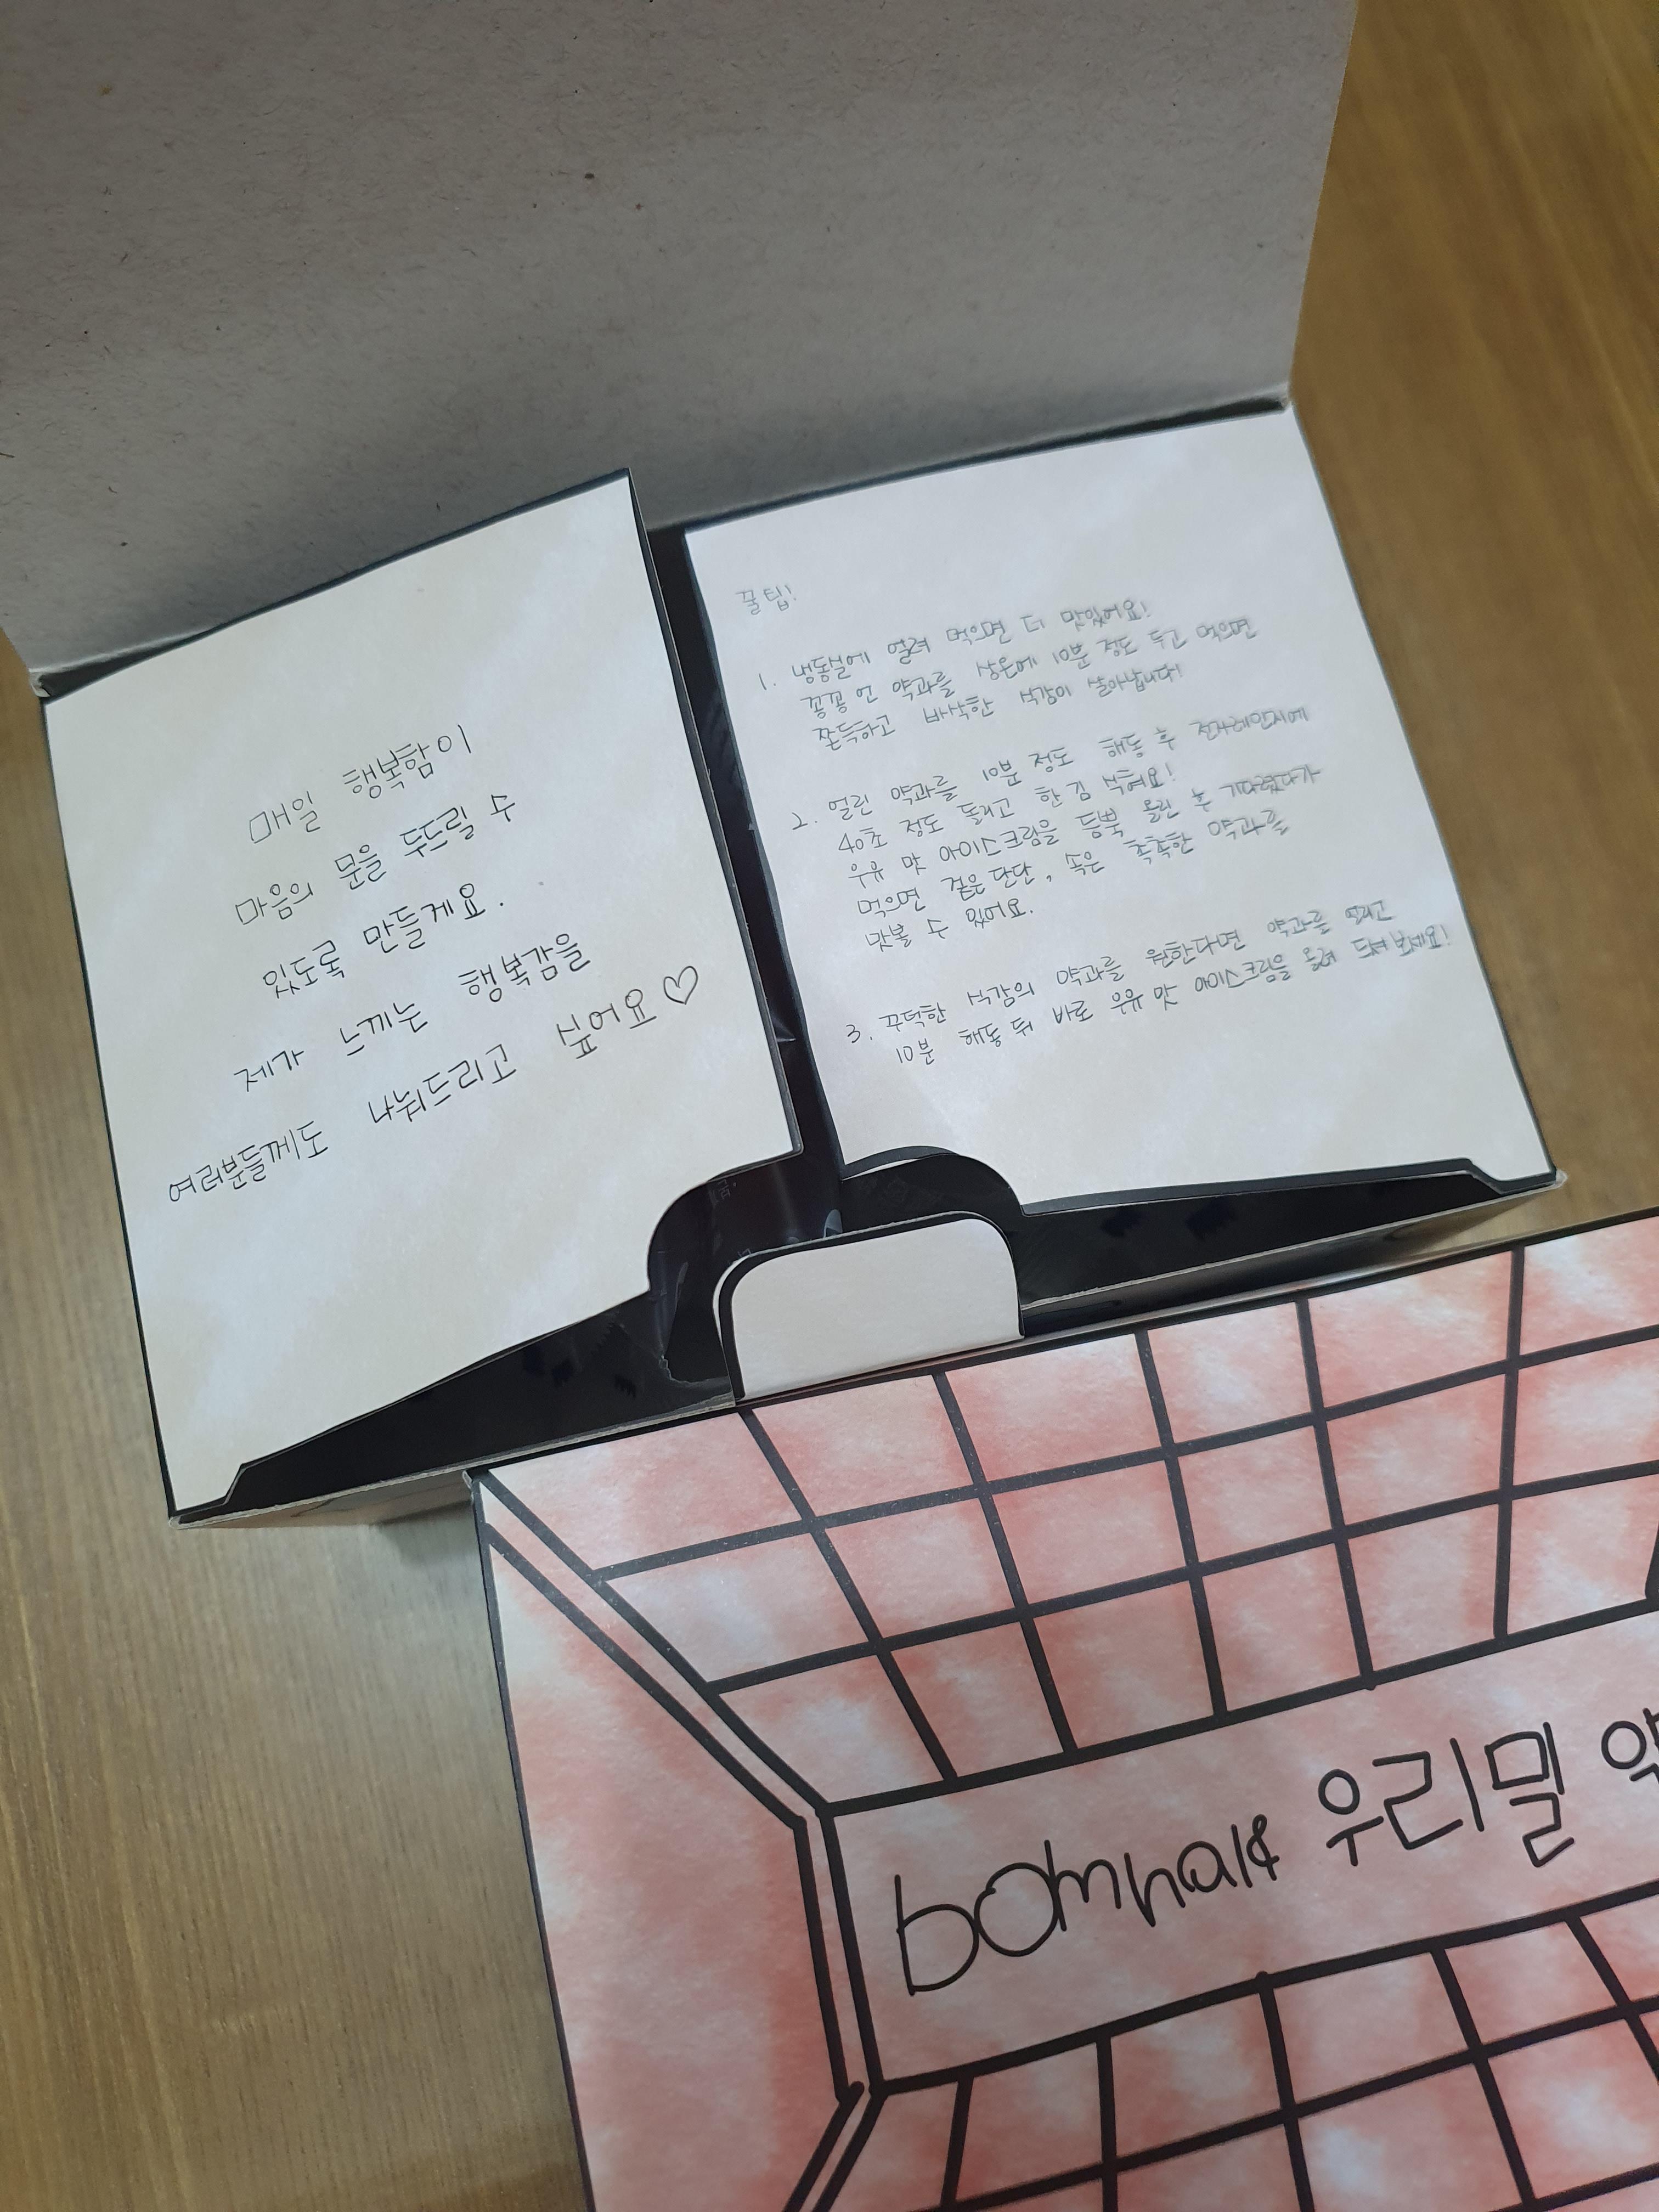 매일 행복함이
마음의 문을 두드릴 수
있도록 만들게요.
제가 느끼는 행복감을
여러분들께도 나눠드리고 싶어요♡
꿀팁!
1. 냉동실에 얼려 먹으면 더 맛있어요!
꽁꽁 언 약과를 상온에 10분 정도 두고 먹으면
쫀득하고 바삭한 식감이 살아납니다!
2. 얼린 약과를 10분 정도 해동 후 전자레인지에
40초 정도 돌리고 한 김 식혀요!
우유 맛 아이스크림을 듬뿍 올린 후 기다렸다가
먹으면 겉은 단단, 속은 촉촉한 약과를
맛볼 수 있어요.
3. 꾸덕한 식감의 약과를 원한다면 약과를 얼리고
10분 해동 뒤 바로 우유 맛 아이스크림을 올려 드셔 보세요!
우리밀